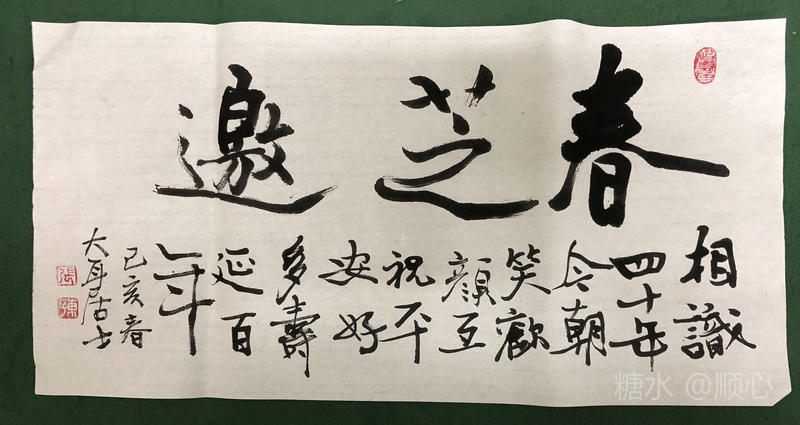 春芝邀
相識
四十年
今朝
笑歡
顏互
祝平
安好
多壽
延百
年
己亥春
大耳居士
張
糖水 @顺心